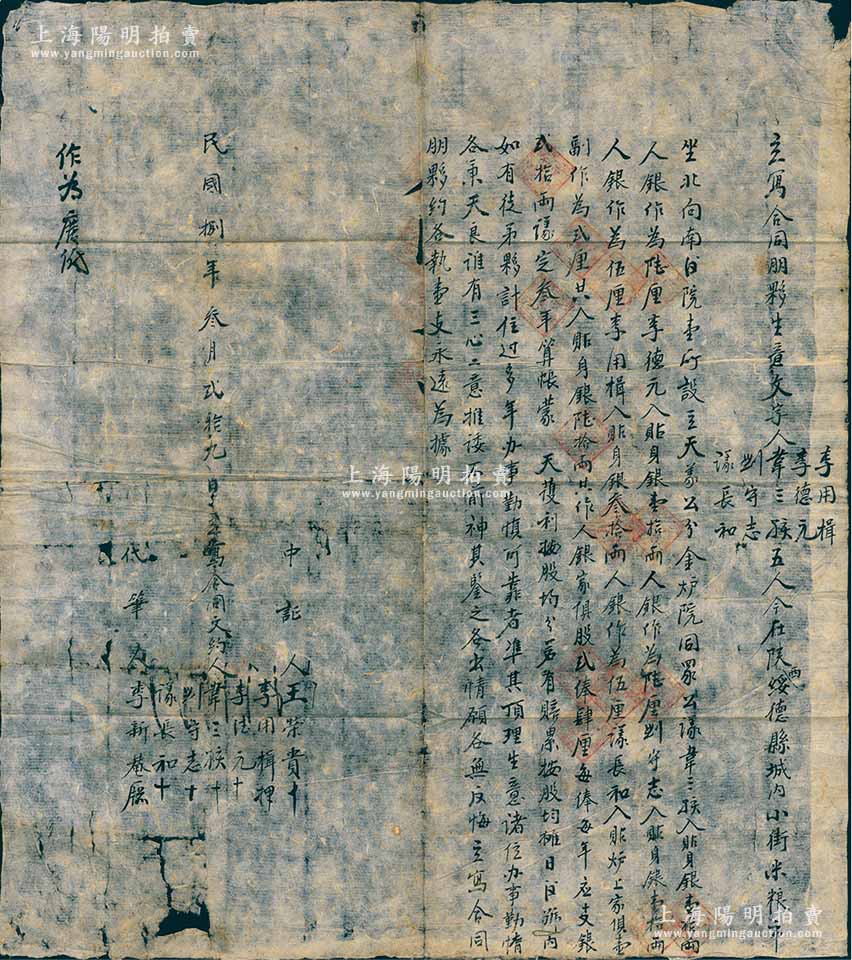 上海陽明拍賣
www.yangmingauction.com
上海陽明拍賣
www.yangmingauction.com
李用楫
李德元
立寫合同朋夥生意文字人韋三
五人今在陝西綏德縣城內小街米粮市
劉守志
長和
坐北向南 院壹所設立天義公分金炉院同眾公議韋三 入貼身銀 拾兩
人銀作為陆厘李德元入貼身銀壹拾兩人銀作為陆厘劉守志入貼身銀 兩
人銀作為伍厘李用楫入貼身銀叁拾兩人銀作為伍厘 長和入貼炉上家俱壹
副作為弍厘共入貼身銀陆拾兩共作人銀家俱股弍俸肆厘每俸每年应支銀
弍拾兩議定叁年算帳蒙 天 獲利按股均分若有賠累按股均摊日後 內
如有徒弟夥計住过多年办事勤慎可靠者准其顶理生意諸位办事勤惰
各秉天良誰有三心二意推诿 前神其鑒之各出情願各無反悔立寫合同
朋夥约各执壹支永遠為據
民國捌年叁月弍拾九日立寫合同文約人
韋三 十
李用楫押
李德元十
劉守志十
長和十
中証人王荣貴十
代筆人李新
作為廢
上海陽明拍賣
www.yangmingauction.com
上海陽明拍賣
www.yangmingauction.com